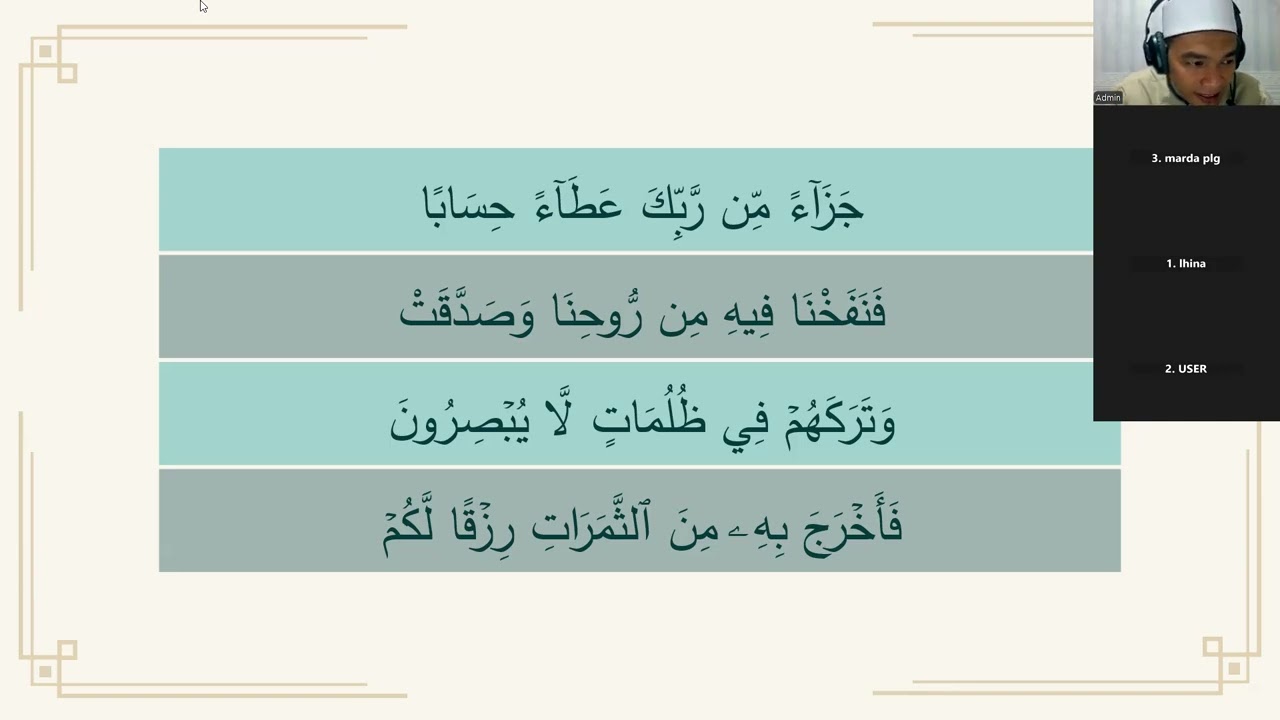 جَزَآءً مِّن رَّبِّكَ عَطَآءً حِسَابًا
فَنَفَخْنَا فِيهِ مِن رُّوحِنَا وَصَدَّقَتْ
وَتَرَكَهُمْ فِي ظُلُمَاتٍ لَّا يُبْصِرُونَ
فَأَخْرَجَ بِهِۦ مِنَ ٱلثَّمَرَاتِ رِزْقًا لَّكُمْ
Admin
3. marda plg
1. lhina
2. USER